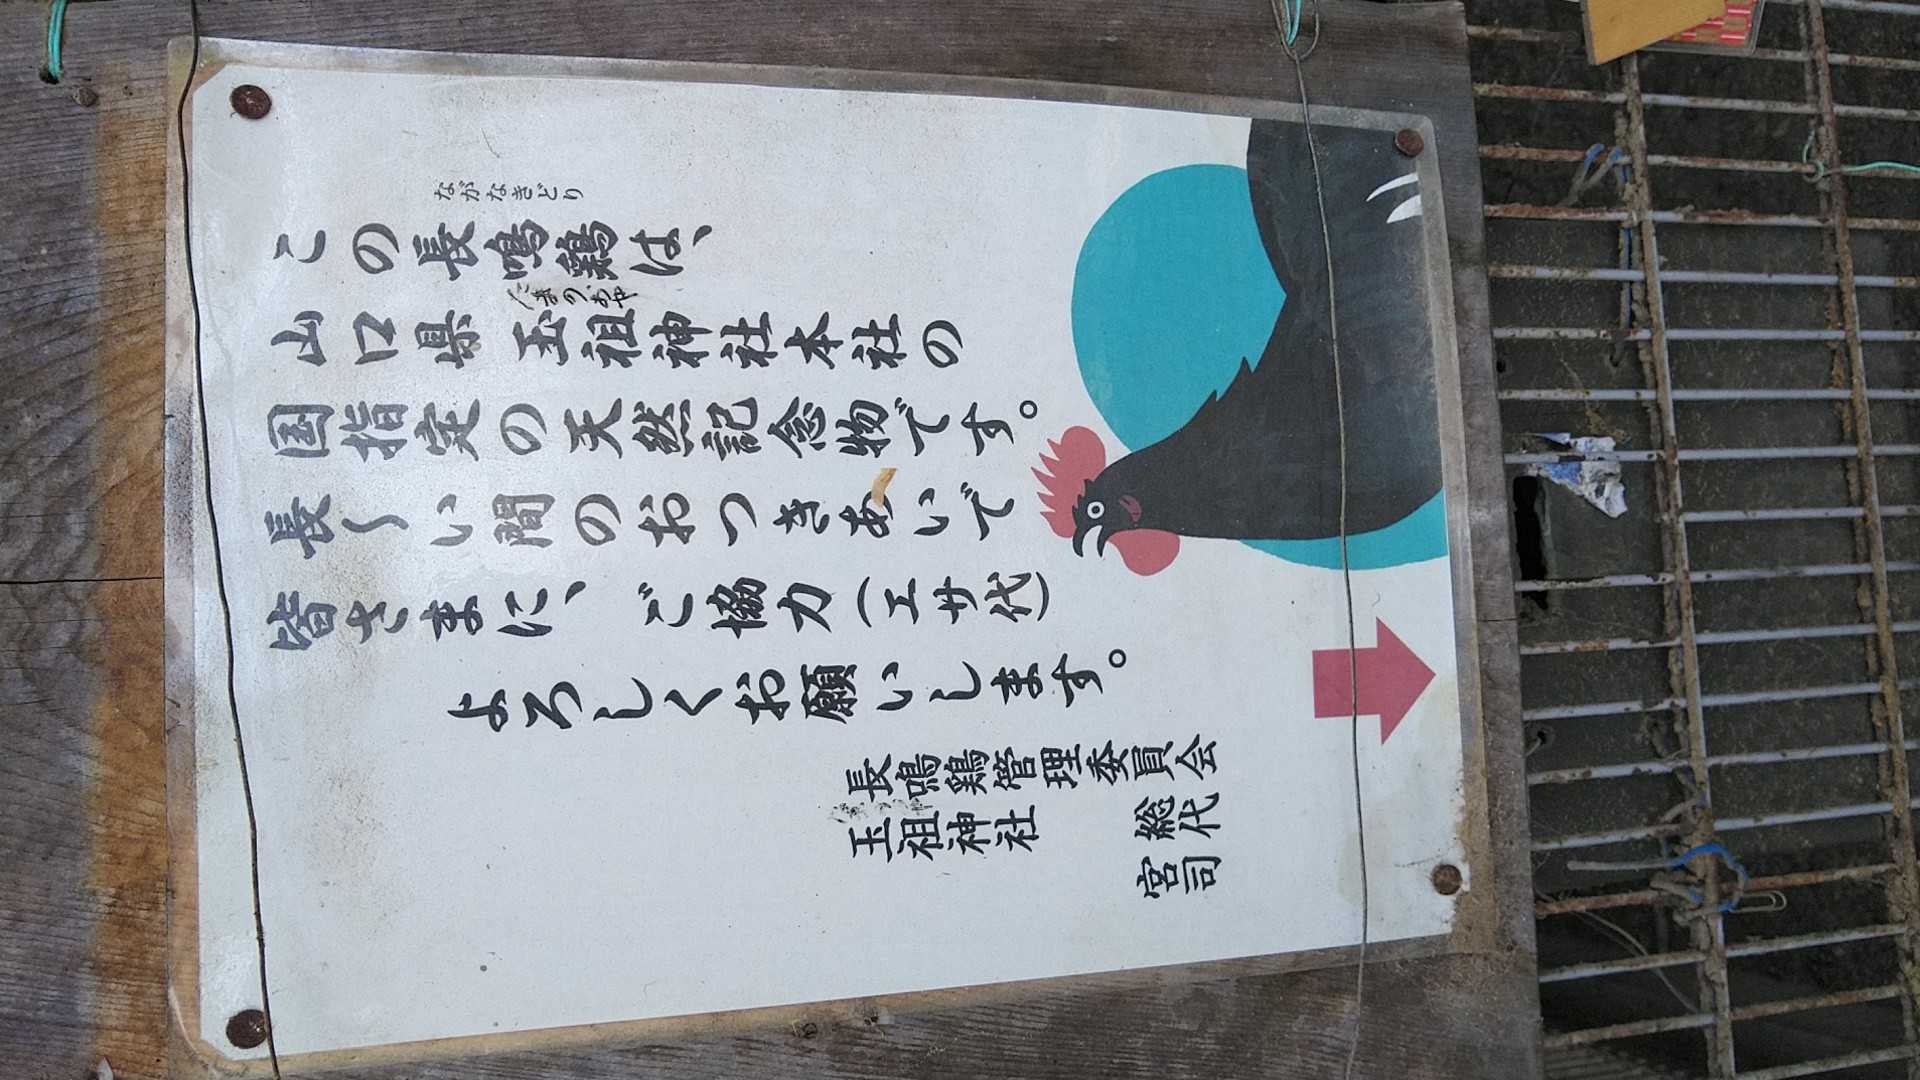 ながなきどり
この長鳴鶏は、
たまのおや
山口県 玉祖神社本社の
国指定の天然記念物です。
長〜い間のおつきあいで
皆さまに、ご協力（エサ代）
よろしくお願いします。
長鳴鶏管理委員会
玉祖神社 総代
宮司